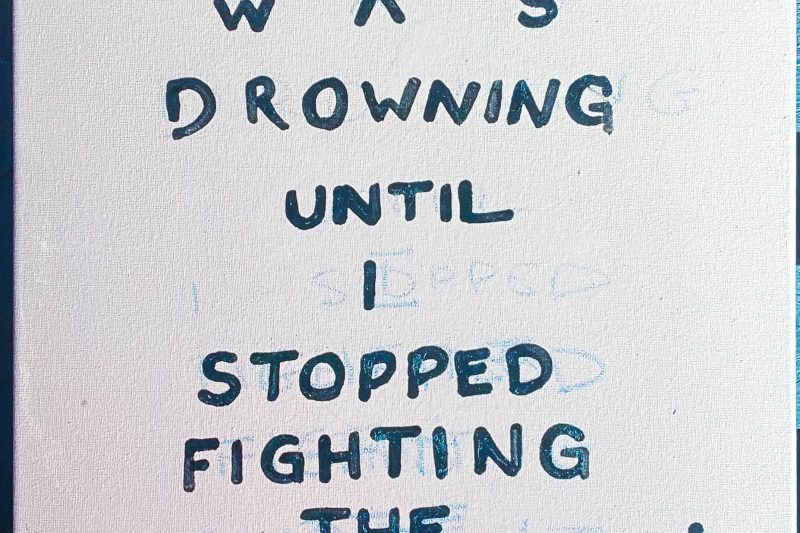 WAS
DROWNING
UNTIL
I
STOPPED
FIGHTING
THE